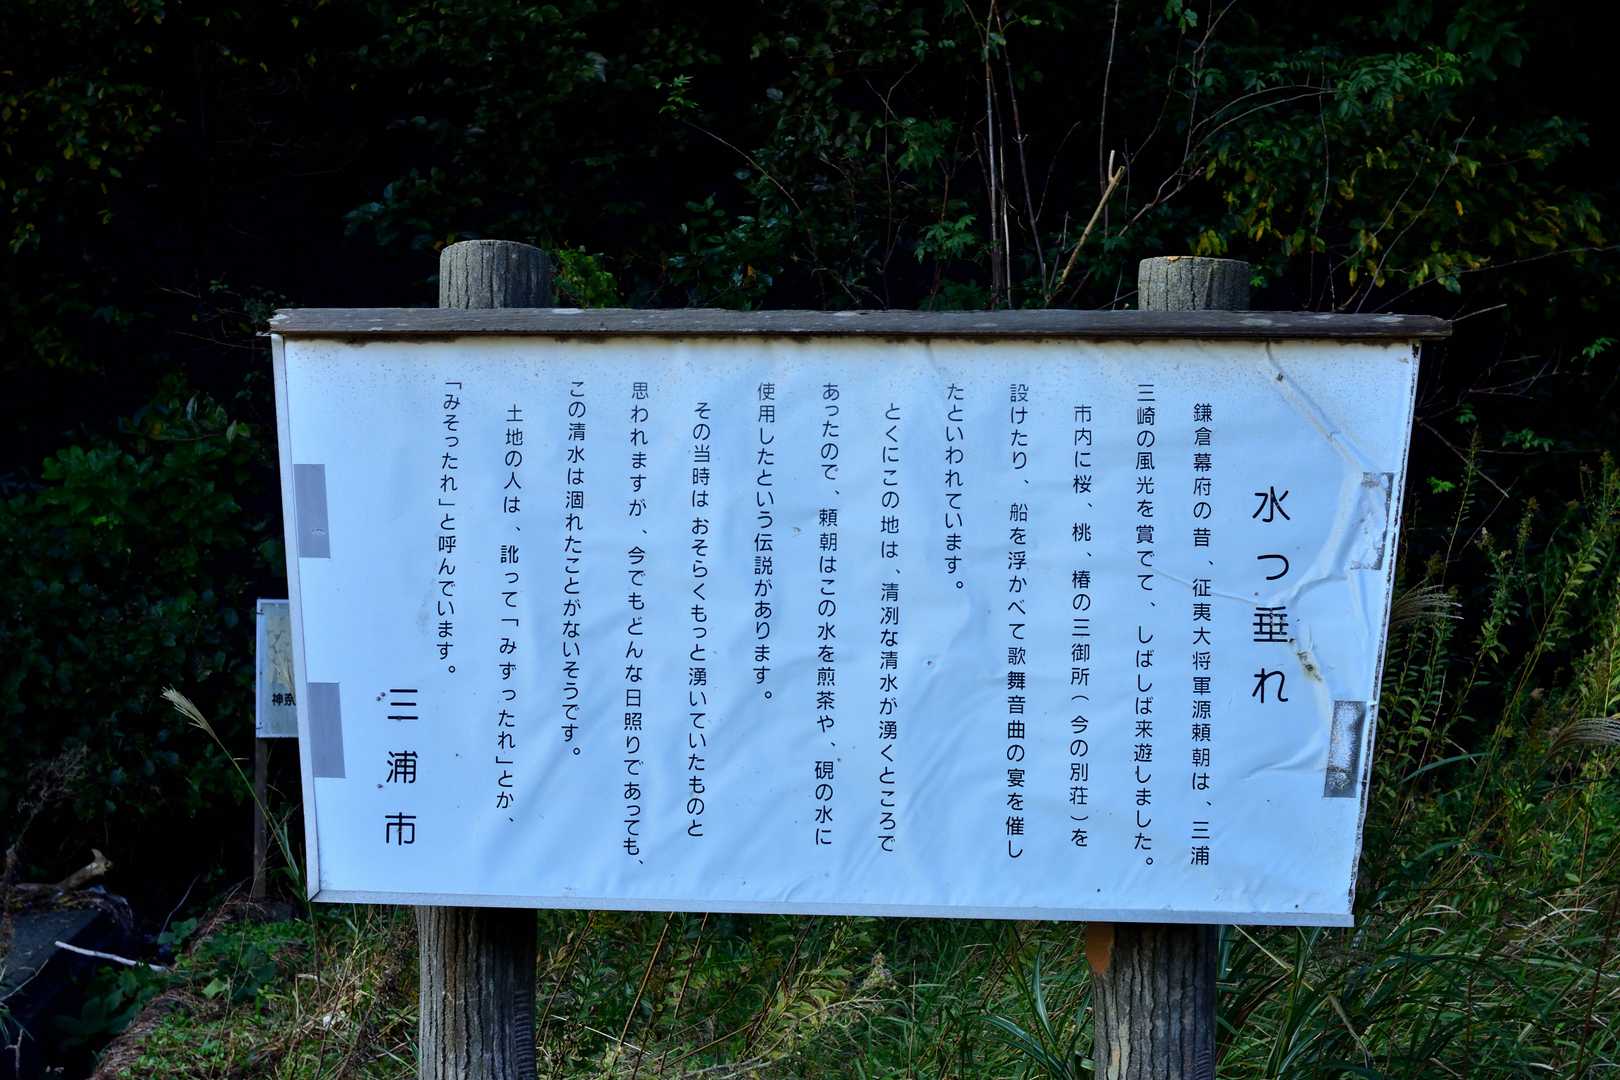 水っ垂れ
鎌倉幕府の昔、征夷大将軍源頼朝は、三浦
三崎の風光を賞でて、しばしば来遊しました。
市内に桜、桃、椿の三御所(今の別荘)を
設けたり、船を浮かべて歌舞音曲の宴を催し
たといわれています。
とくにこの地は、清冽な清水が湧くところで
あったので、頼朝はこの水を煎茶や、硯の水に
使用したという伝説があります。
その当時はおそらくもっと湧いていたものと
思われますが、今でもどんな日照りであっても、
この清水は涸れたことがないそうです。
土地の人は、訛って「みずったれ」とか、
「みそったれ」と呼んでいます。
三浦市
神奈